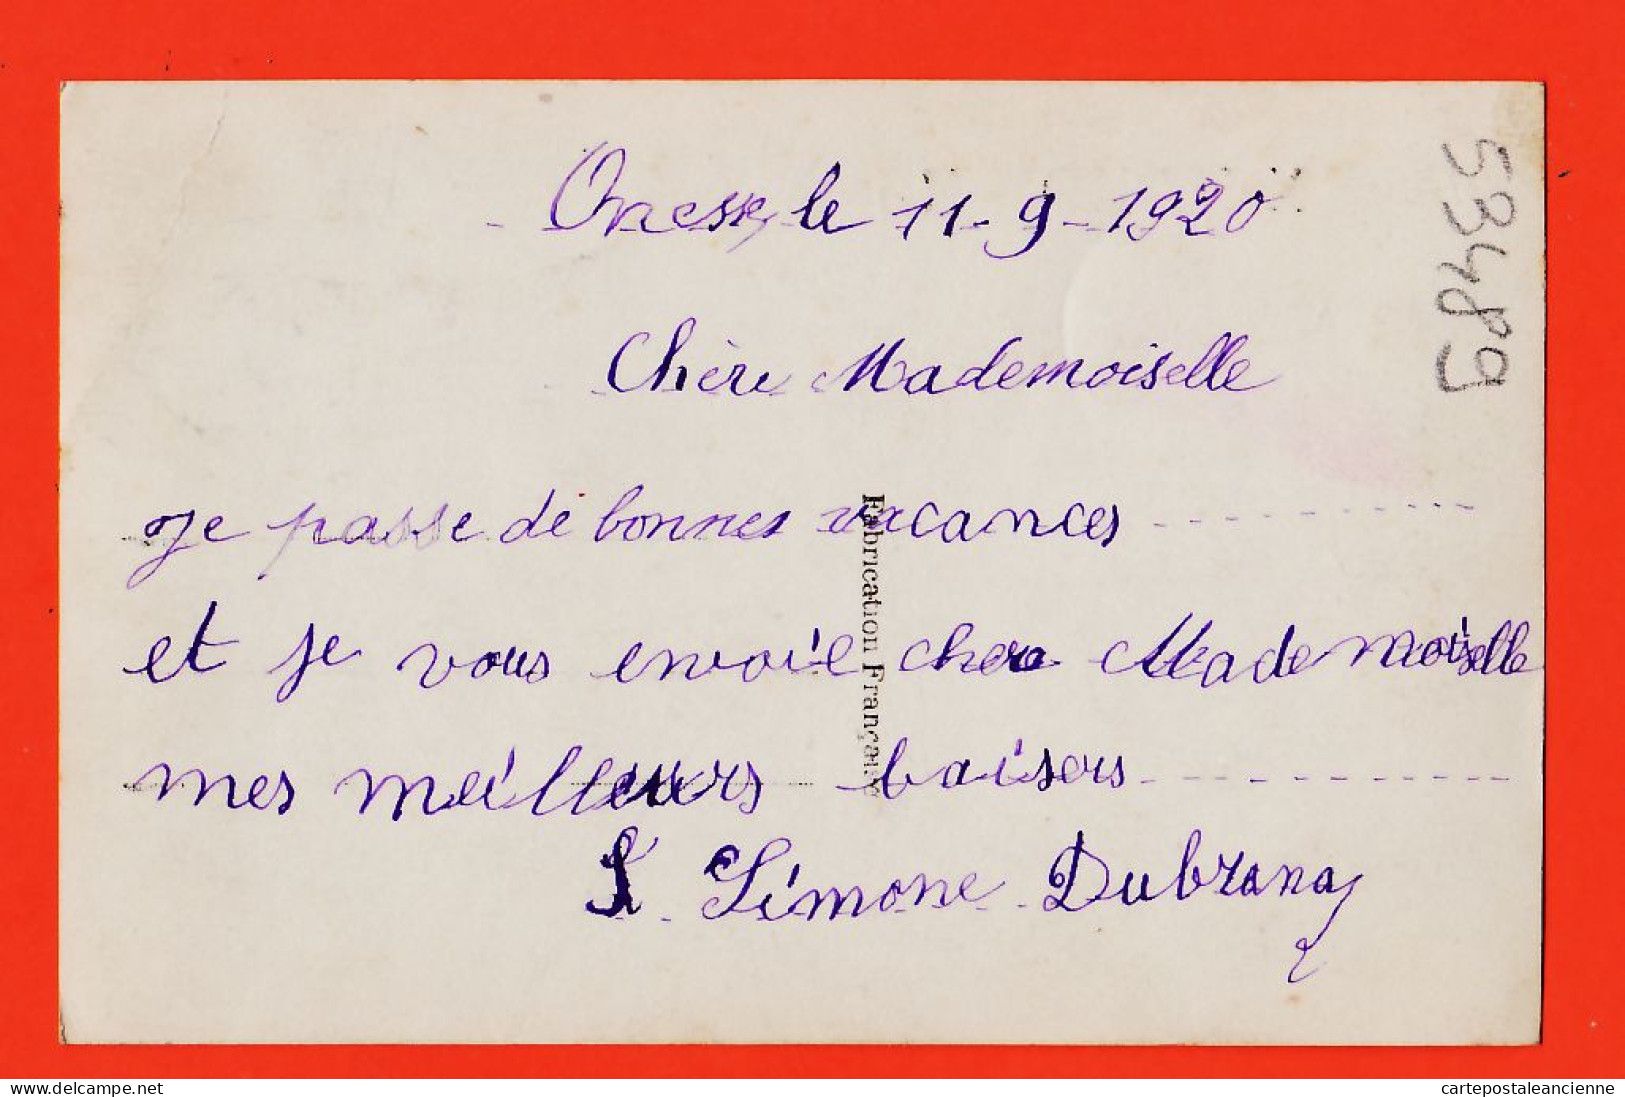 Onesse, le 11-9-1920
Chère Mademoiselle
Je passe de bonnes vacances
et je vous envoie chere Mademoiselle
mes meilleurs baisers
S. Simone Dubrana
Fabrication Française
53489
delcampe.net
cartepostaleancienne